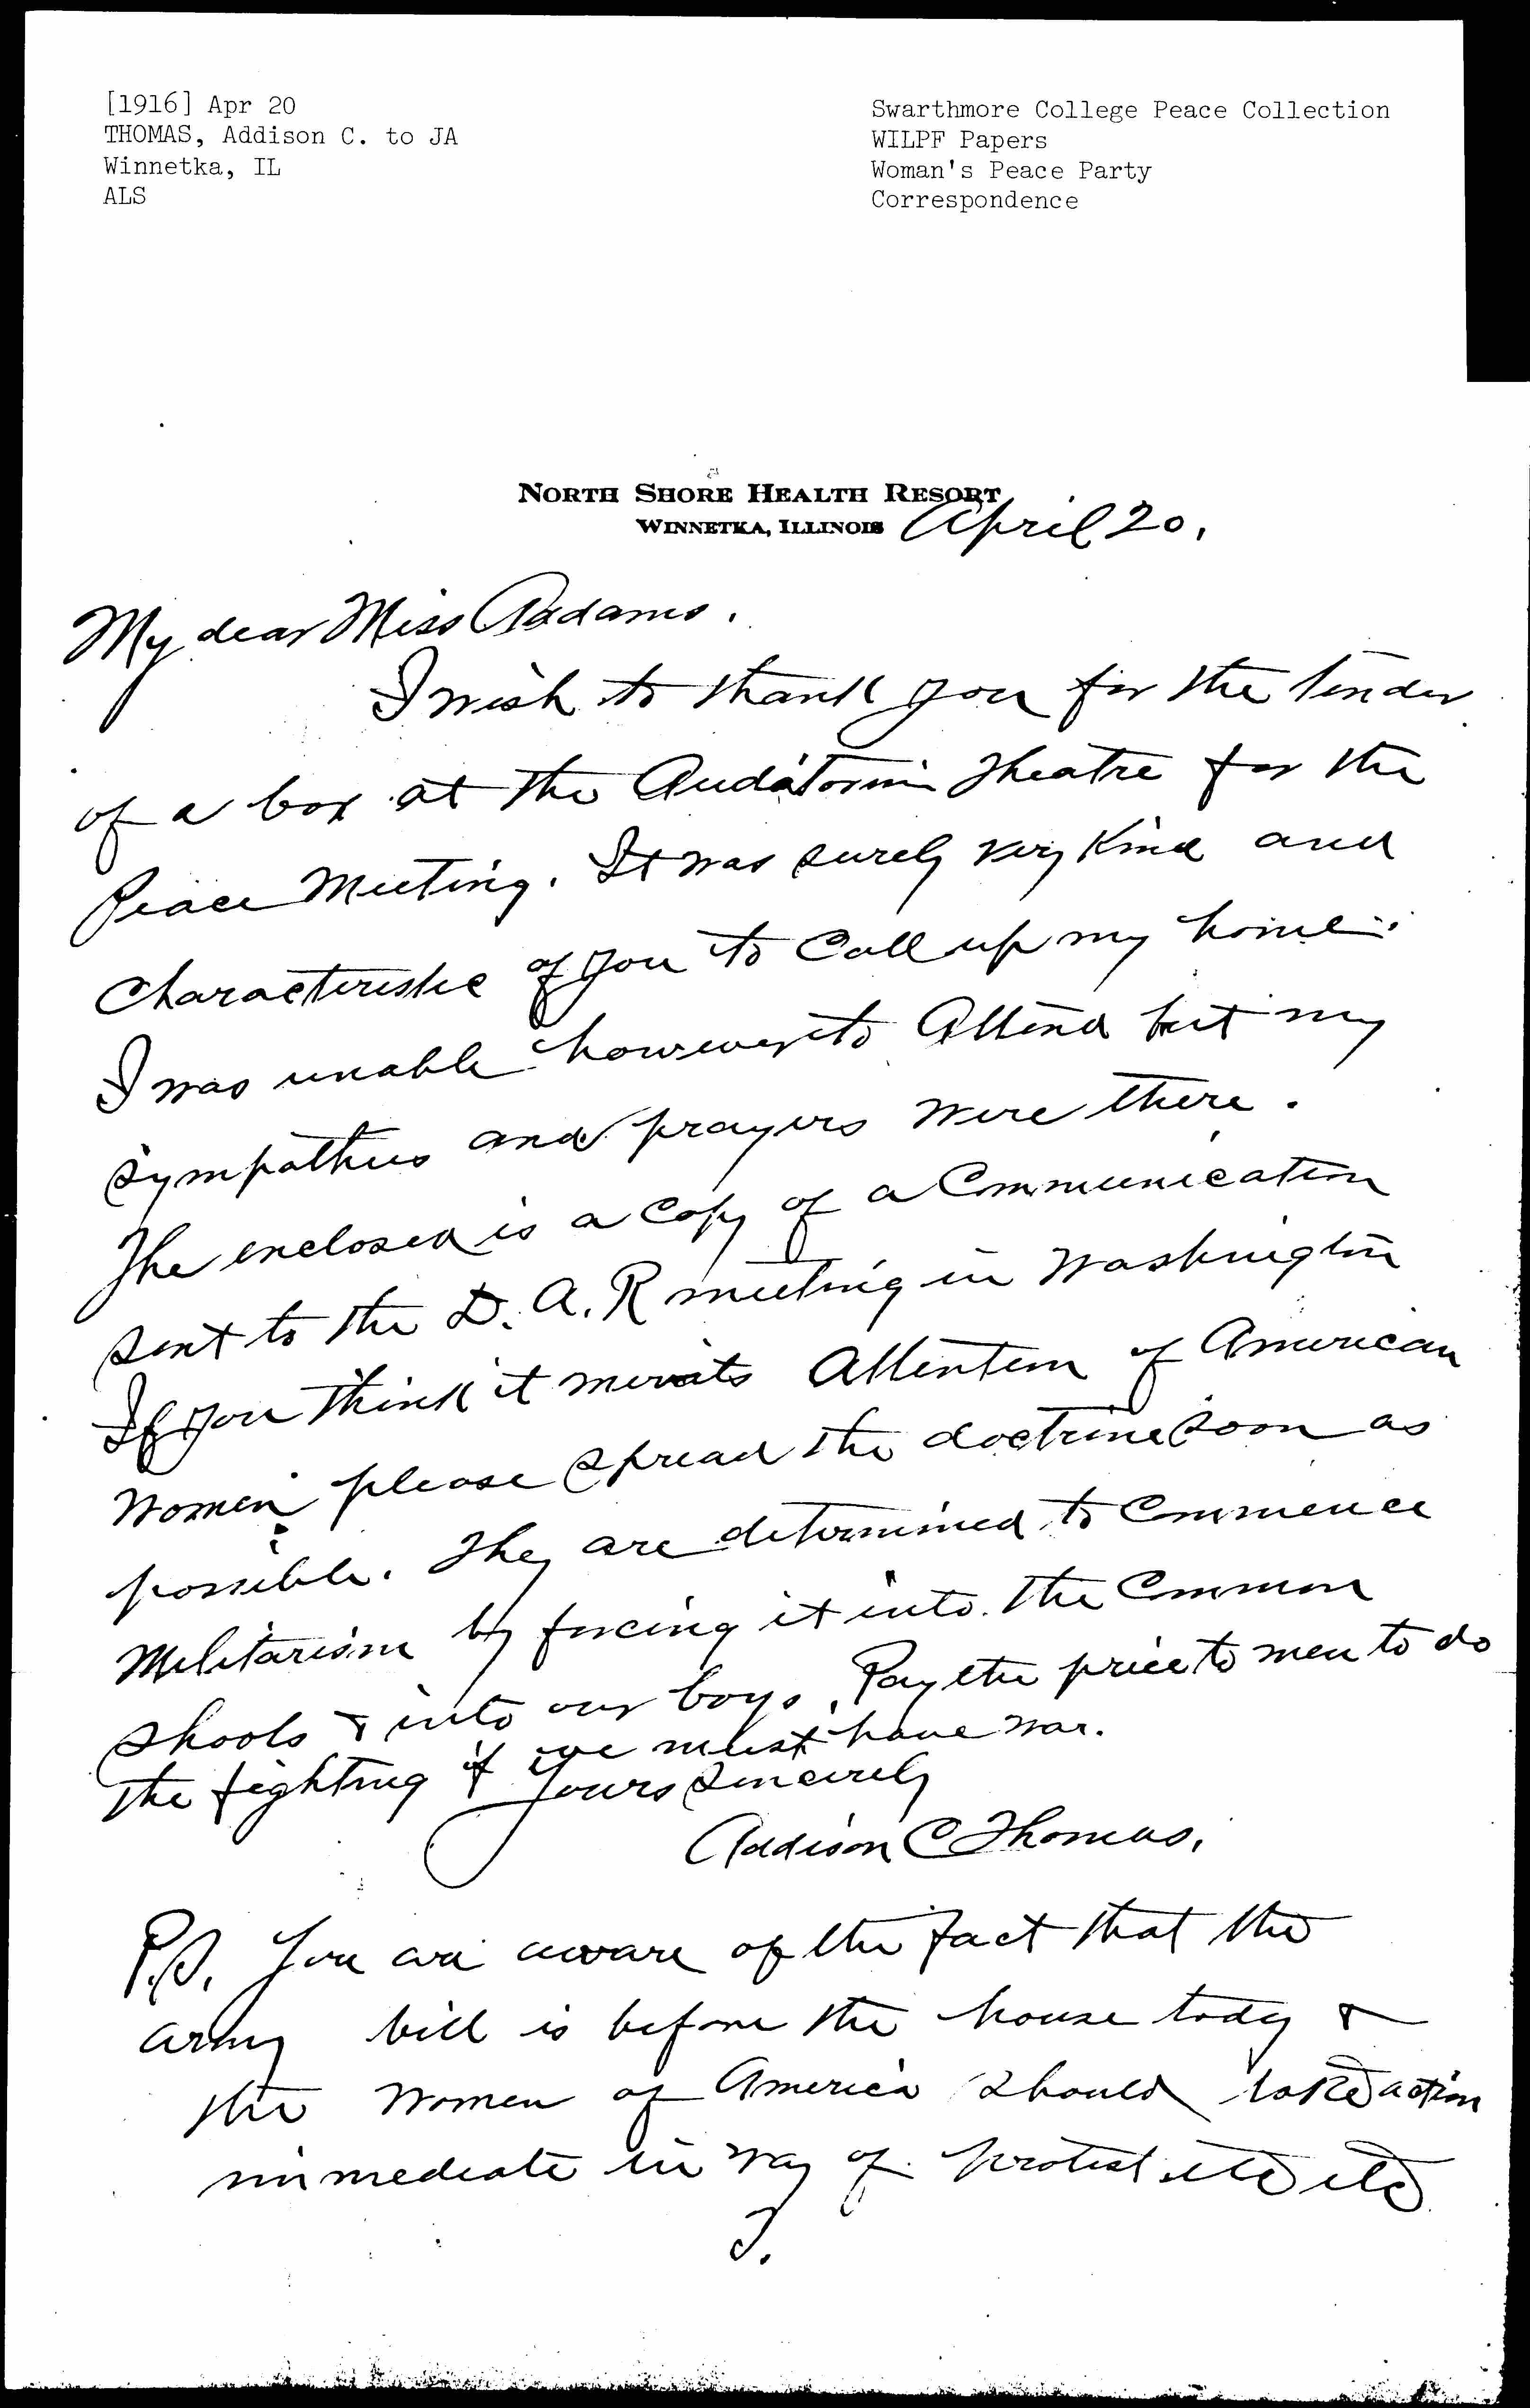 [1916] Apr 20
THOMAS, Addison C. to JA
Winnetka, IL
ALS
Swarthmore College Peace Collection
WILPF Papers
Woman's Peace Party
Correspondence
NORTH SHORE HEALTH RESORT
WINNETKA, ILLINOIS April 20.
My dear Miss Addams.
I wish to thank you for the tender
of a box at the Auditorium Theatre for the
Peace Meeting. It was surely very kind and
characteristic of you to call up my home.
I was unable however to attend but my
sympathies and prayers were there.
The enclosed is a copy of a Communication
sent to the D.A.R meeting in Washington
If you think it merits attention of American
women please spread the doctrine soon as
possible. They are determined to commence
Militarism by forcing it into the common
shools & into our boys. Pay the price to men to do
the fighting if we must have war.
Yours sincerely
Addison C Thomas.
P.S. You are aware of the fact that the
army bill is before the house today &
the women of America should take action
immediate in way of protest etc etc
T.